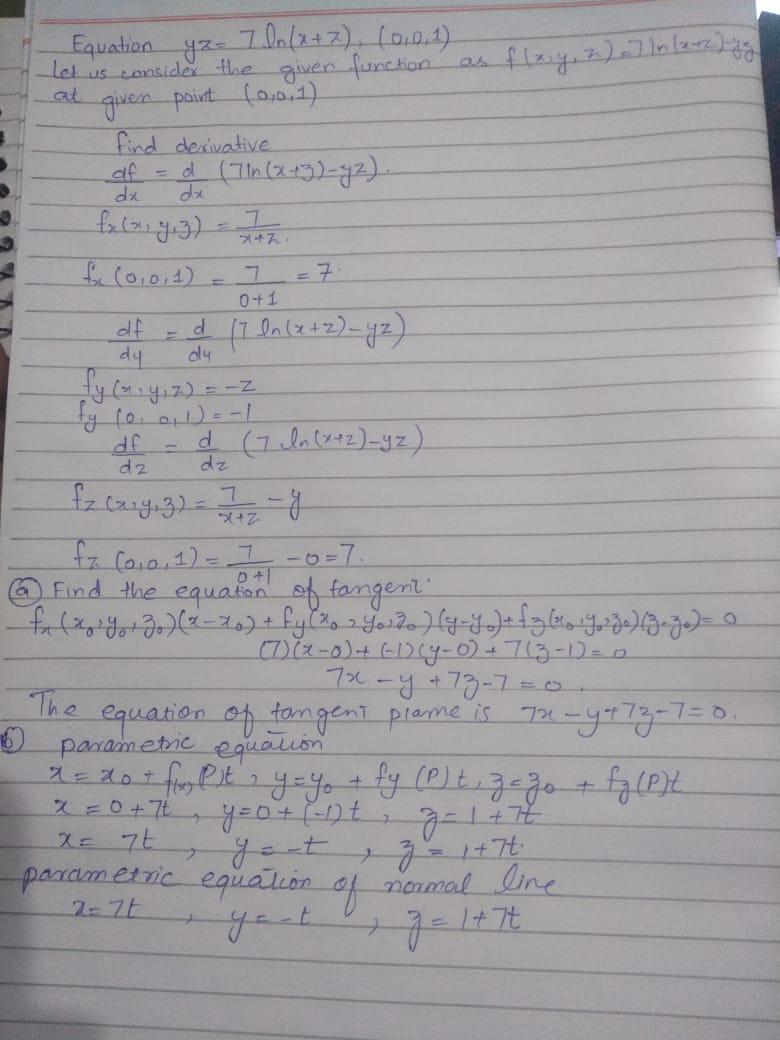 Equation yz= 7 ln(x+z), (0,0,1)
Let us consider the given function as f(x,y,z)=7ln(x+z)-yz
at given point (0,0,1)
find derivative
df/dx = d/dx (7ln(x+z)-yz).
fx(x,y,z) = 7/x+z.
fx (0,0,1) = 7/0+1 = 7.
df/dy = d/dy (7 ln(x+z)-yz)
fy(x,y,z) = -z
fy (0,0,1) = -1
df/dz = d/dz (7 ln(x+z)-yz)
fz (x,y,z) = 7/x+z - y
fz (0,0,1) = 7/0+1 - 0 = 7.
(a) Find the equation of tangent.
fx(x₀,y₀,z₀)(x-x₀) + fy(x₀,y₀,z₀)(y-y₀)+fz(x₀,y₀,z₀)(z-z₀)=0
(7)(x-0)+(-1)(y-0)+7(z-1)=0
7x-y+7z-7=0.
The equation of tangent plame is 7x-y+7z-7=0.
(b) parametric equation
x=x₀+f(x)(P)t, y=y₀+fy(P)t, z=z₀+fz(P)t
x=0+7t, y=0+(-1)t, z=1+7t
x=7t, y=-t, z=1+7t.
parametric equation of normal line
x=7t, y=-t, z=1+7t